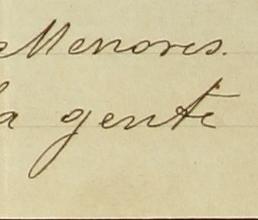 Menores.
la gente